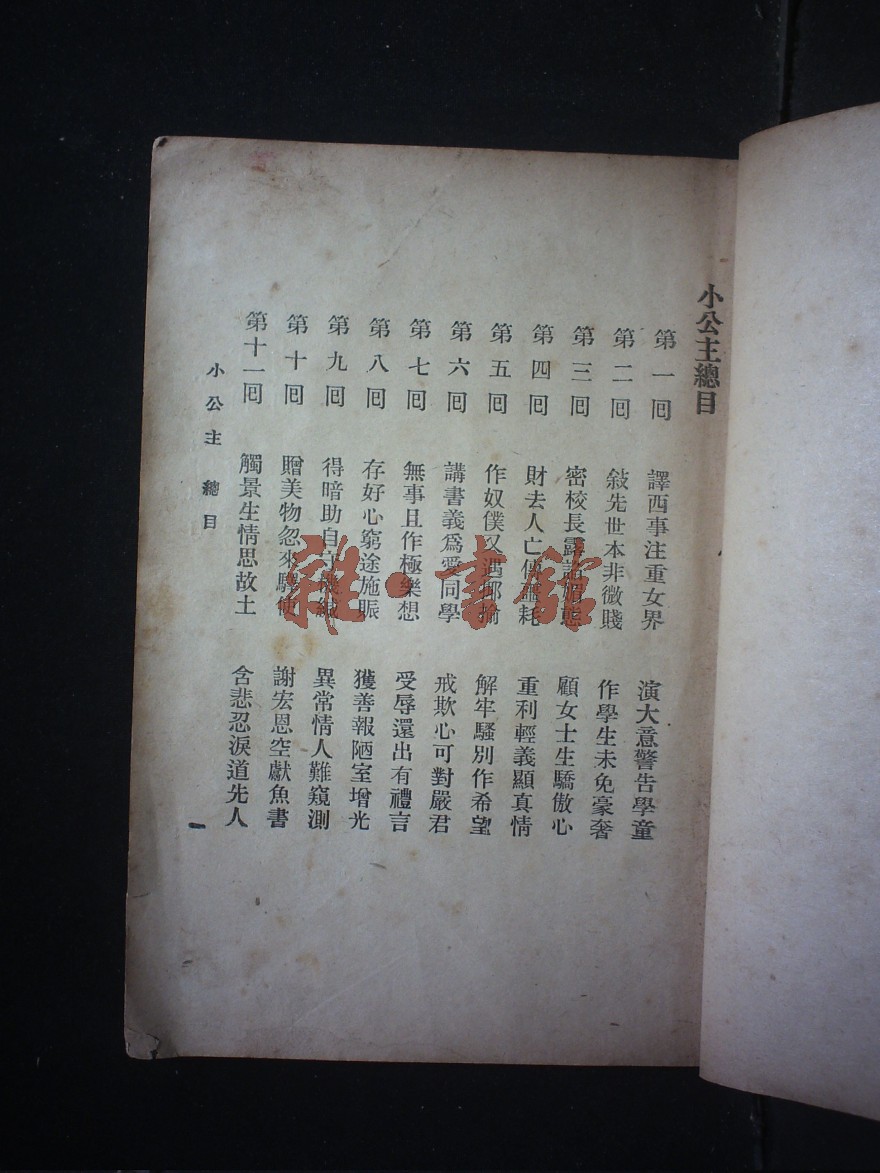 小公主總目
第一囘 譯西事注重女界 演大意警告學童
第二囘 敍先世本非微賤 作學生未免豪奢
第三囘 密校長露諂媚態 顧女士生驕傲心
第四囘 財去人亡傳噩耗 重利輕義顯真情
第五囘 作奴僕又遇揶揄 解牢騷別作希望
第六囘 講書義爲愛同學 戒欺心可對嚴君
第七囘 無事且作極樂想 受辱還出有禮言
第八囘 存好心窮途施賑 獲善報陋室增光
第九囘 得暗助自守緘 異常情人難窺測
第十囘 贈美物忽來驛使 謝宏恩空獻魚書
第十一囘 觸景生情思故土 含悲忍淚道先人
小公主 總目
一
雜·書館